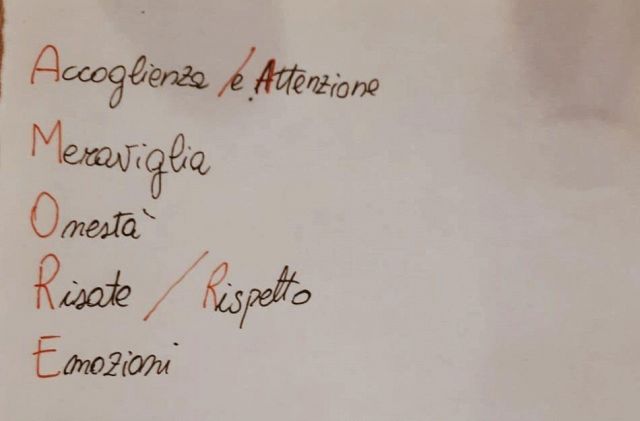 Accoglienza / e Attenzione
Meraviglia
Onestà
Risate / Rispetto
Emozioni